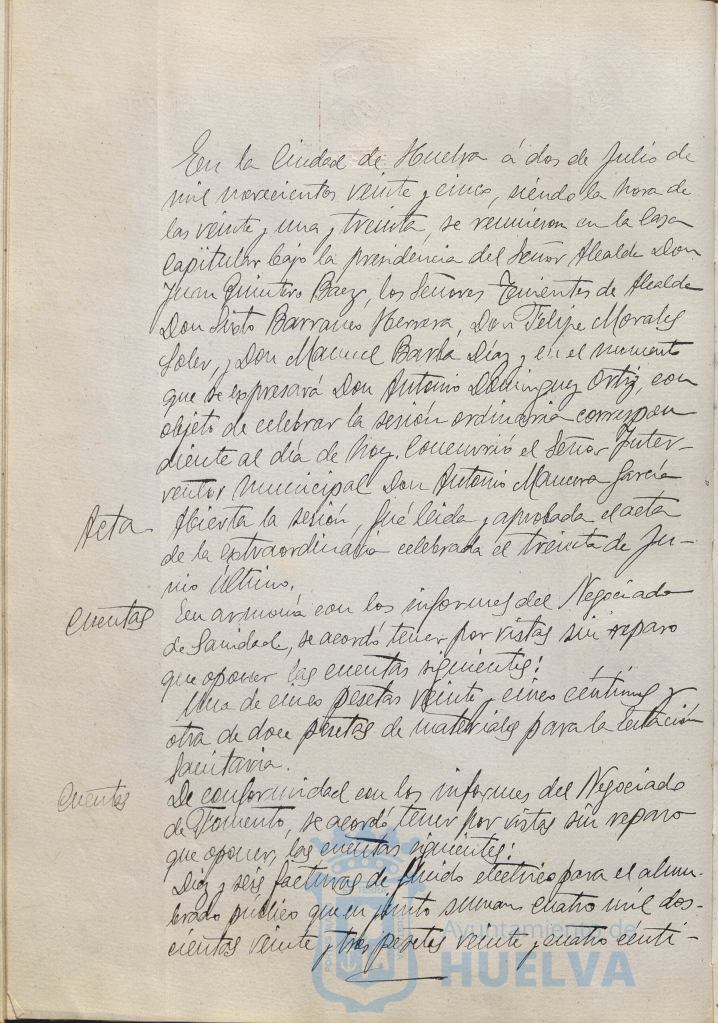 En la Ciudad de Huelva á dos de Julio de
mil novecientos veinte y cinco, siendo la hora de
las veinte y una y treinta, se reunieron en la Casa
Capitular bajo la presidencia del Señor Alcalde Don
Juan Quintero Baez, los Señores Tenientes de Alcalde
Don Sixto Barranco Herrera, Don Felipe Morales
Soler, y Don Manuel Barba Díaz y en el momento
que se expresará Don Antonio Dominguez Ortiz, con
objeto de celebrar la sesión ordinaria correspon
diente al día de hoy. Concurrió el Señor Inter-
ventor Municipal Don Antonio García
Acta Abierta la sesión, fué leida y aprobada el acta
de la extraordinaria celebrada el treinta de Ju-
nio último.
Cuentas En armonía con los informes del Negociado
de Sanidad, se acordó tener por vistas sin reparo
que oponer las cuentas siguientes:
Una de cinco pesetas veinte y cinco céntimos y
otra de doce pesetas de materiales para la Estación
Sanitaria.
Cuentas De conformidad con los informes del Negociado
de Fomento, se acordó tener por vistas sin reparo
que oponer, las cuentas siguientes:
Diez y seis facturas de fluido eléctrico para el alum-
brado público que en junto suman cuatro mil dos-
cientas veinte y tres pesetas veinte y cuatro centi-
Ayuntamiento de
HUELVA